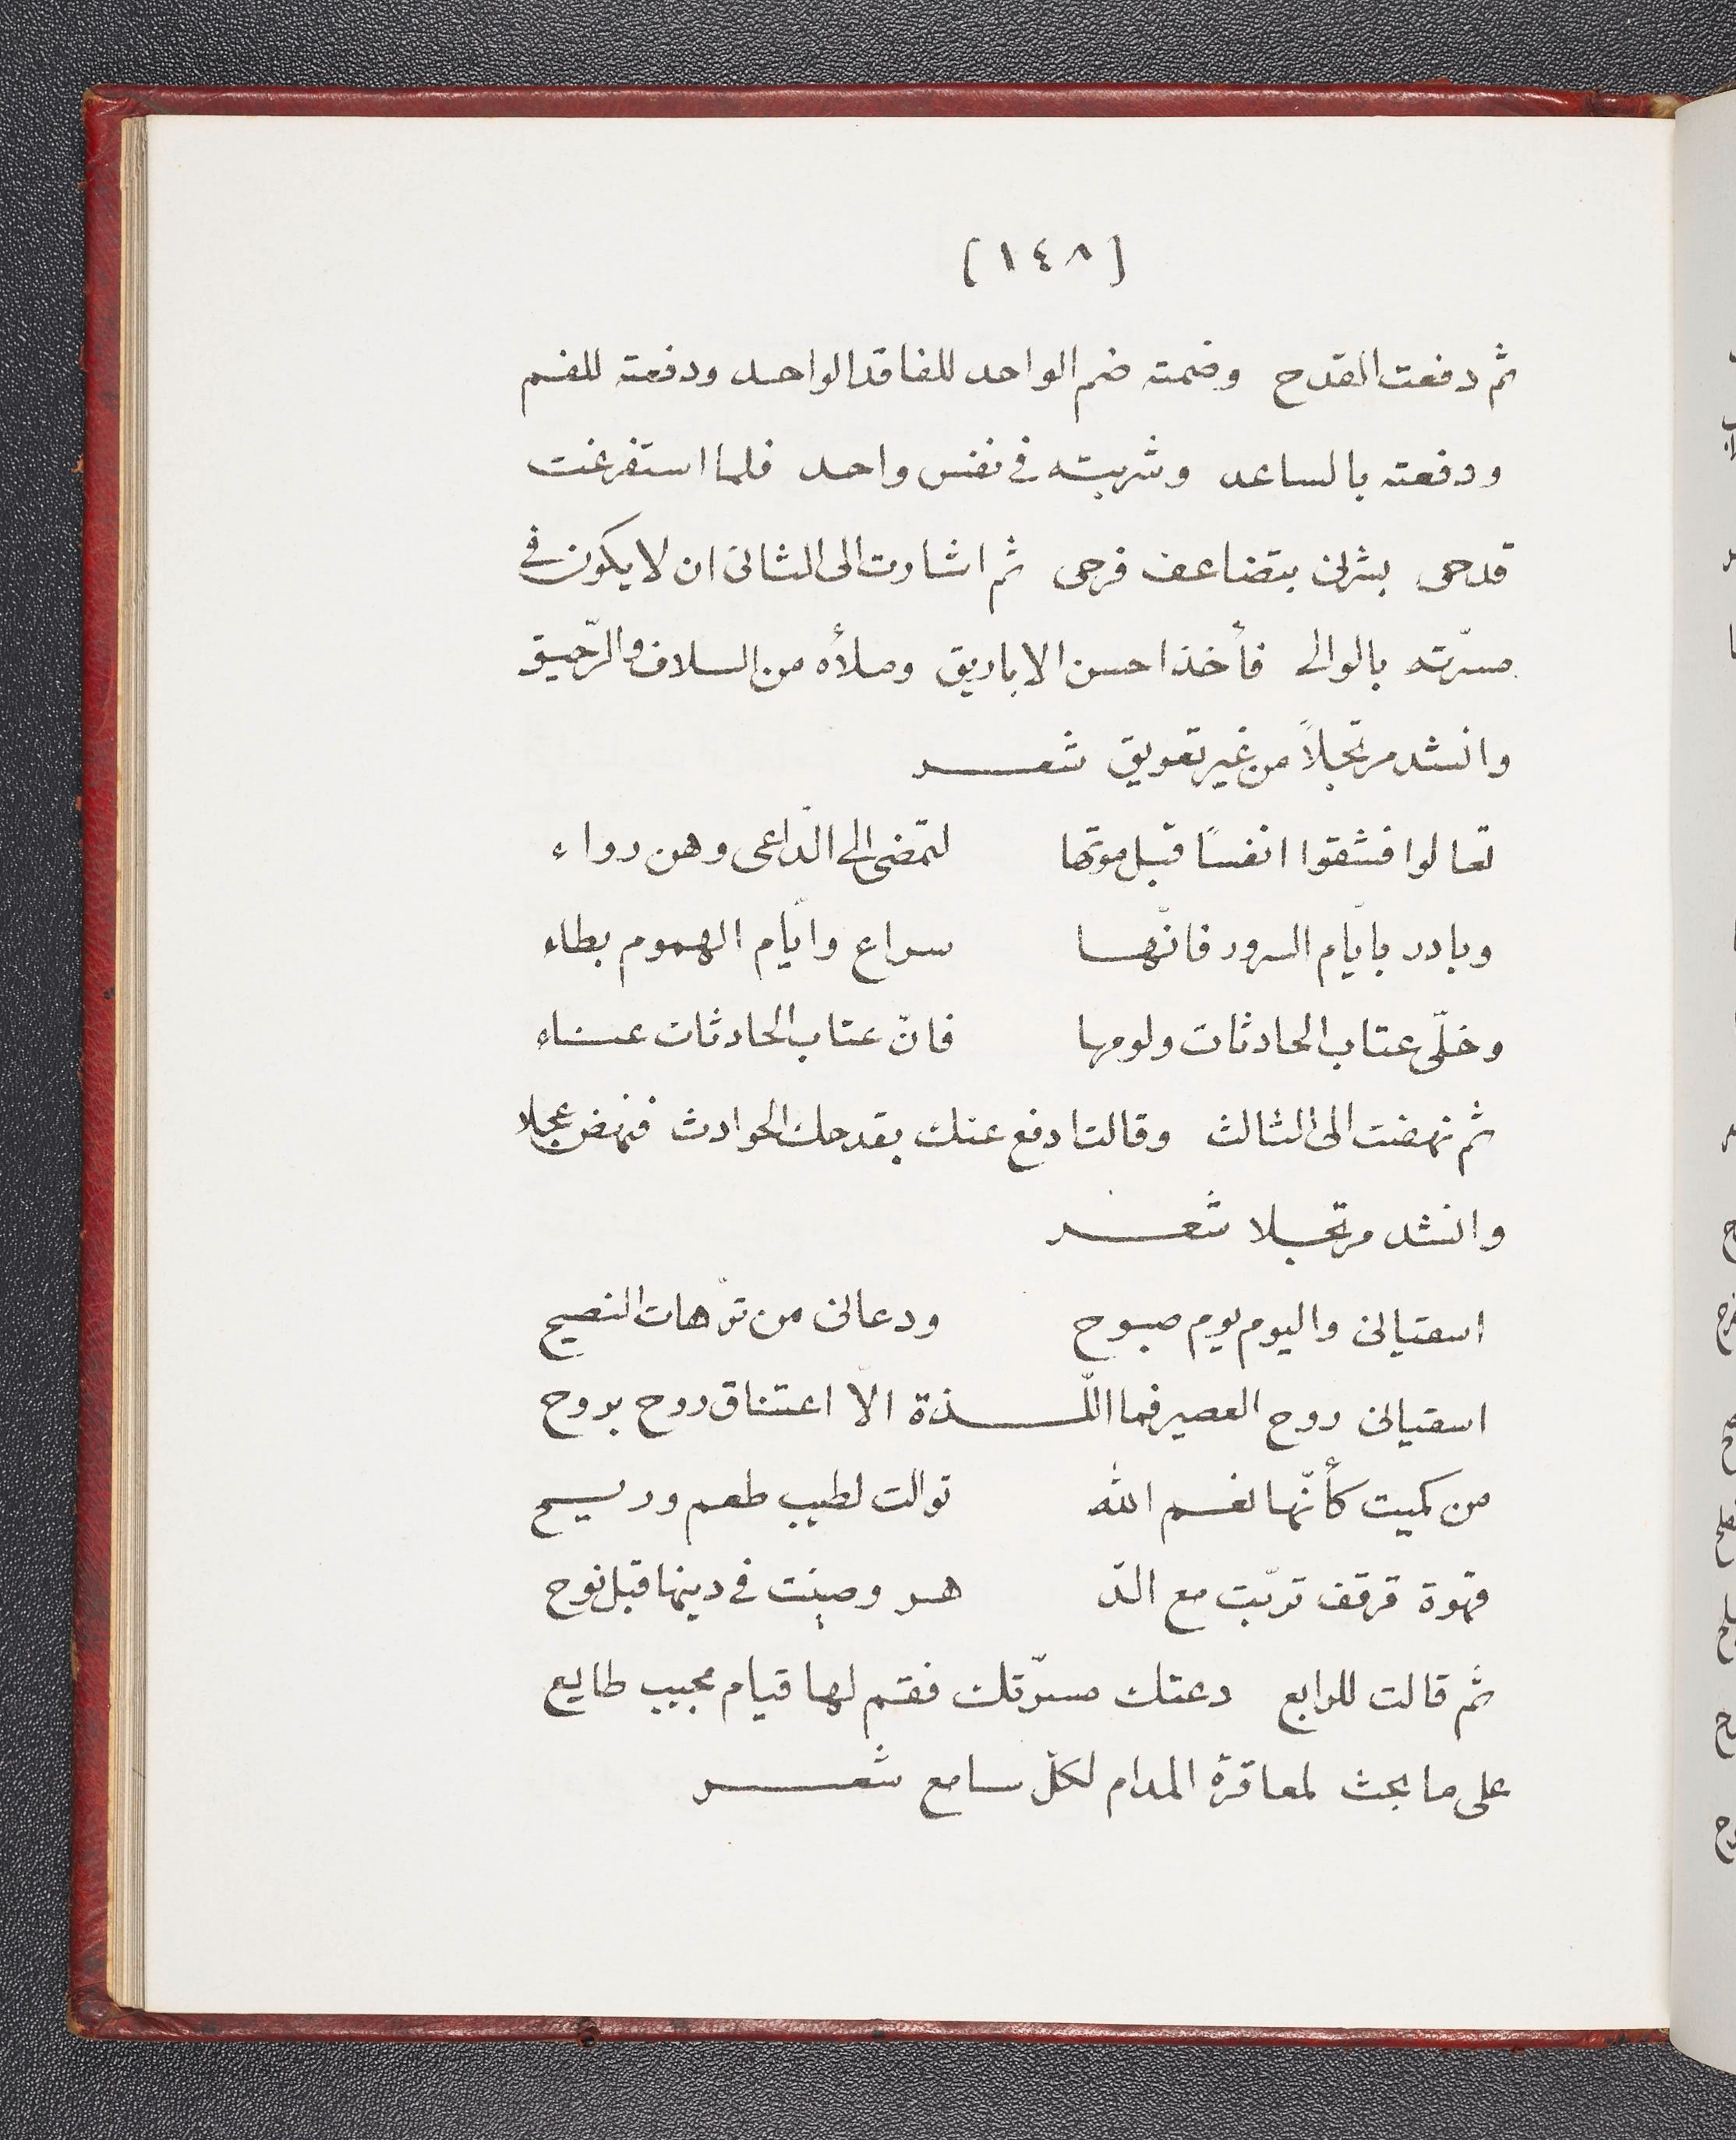 (١٤٨)
ثم دفعت القدح وضمته ضم الواحد للفاقد الواحد ودفعته للفم
ودفعته بالساعد وشربته في نفس واحد فلما استفرغت
قدحى بشرنى بتضاعف فرحى ثم اشارت الى الثانى ان لا يكون في
مسرّته بالوالى فأخذ احسن الاباريق وملأه من السلاف والرّحيق
وانشد مرتجلاً من غير تعويق شعر
تعالوا فشقوا انفسًا قبل موتها لتمضى الى الدّاعى وهن رواء
وبادر بايّام السرور فانّها سراع وايّام الهموم بطاء
وخلّى عتاب الحادثات ولومها فانّ عتاب الحادثات عناء
ثم نهضت الى الثالث وقالت ادفع عنك بقدحك الحوادث فنهض عجلا
وانشد مرتجلا شعر
اسقيانى واليوم يوم صبوح ودعانى من ترّهات النصيح
اسقيانى روح العصير فما اللّذة الّا اعتناق روح بروح
من كميت كأنّها نغم الله توالت لطيب طعم وريح
قهوة قرقف تربّت مع الدّ هر وصينت في دينها قبل نوح
ثم قالت للرابع دعتك مسرّتك فقم لها قيام مجيب طايع
على ما بحث لمعاقرة المدام لكلّ سامع شعر